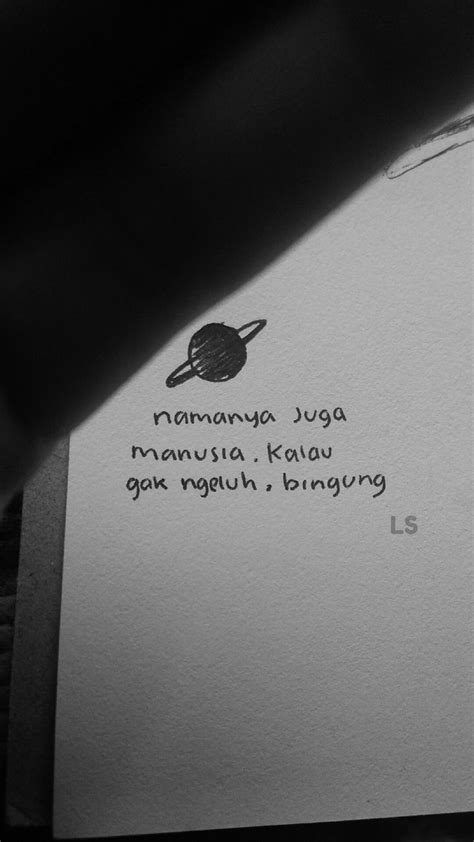 namanya juga
manusia. Kalau
gak ngeluh, bingung
LS